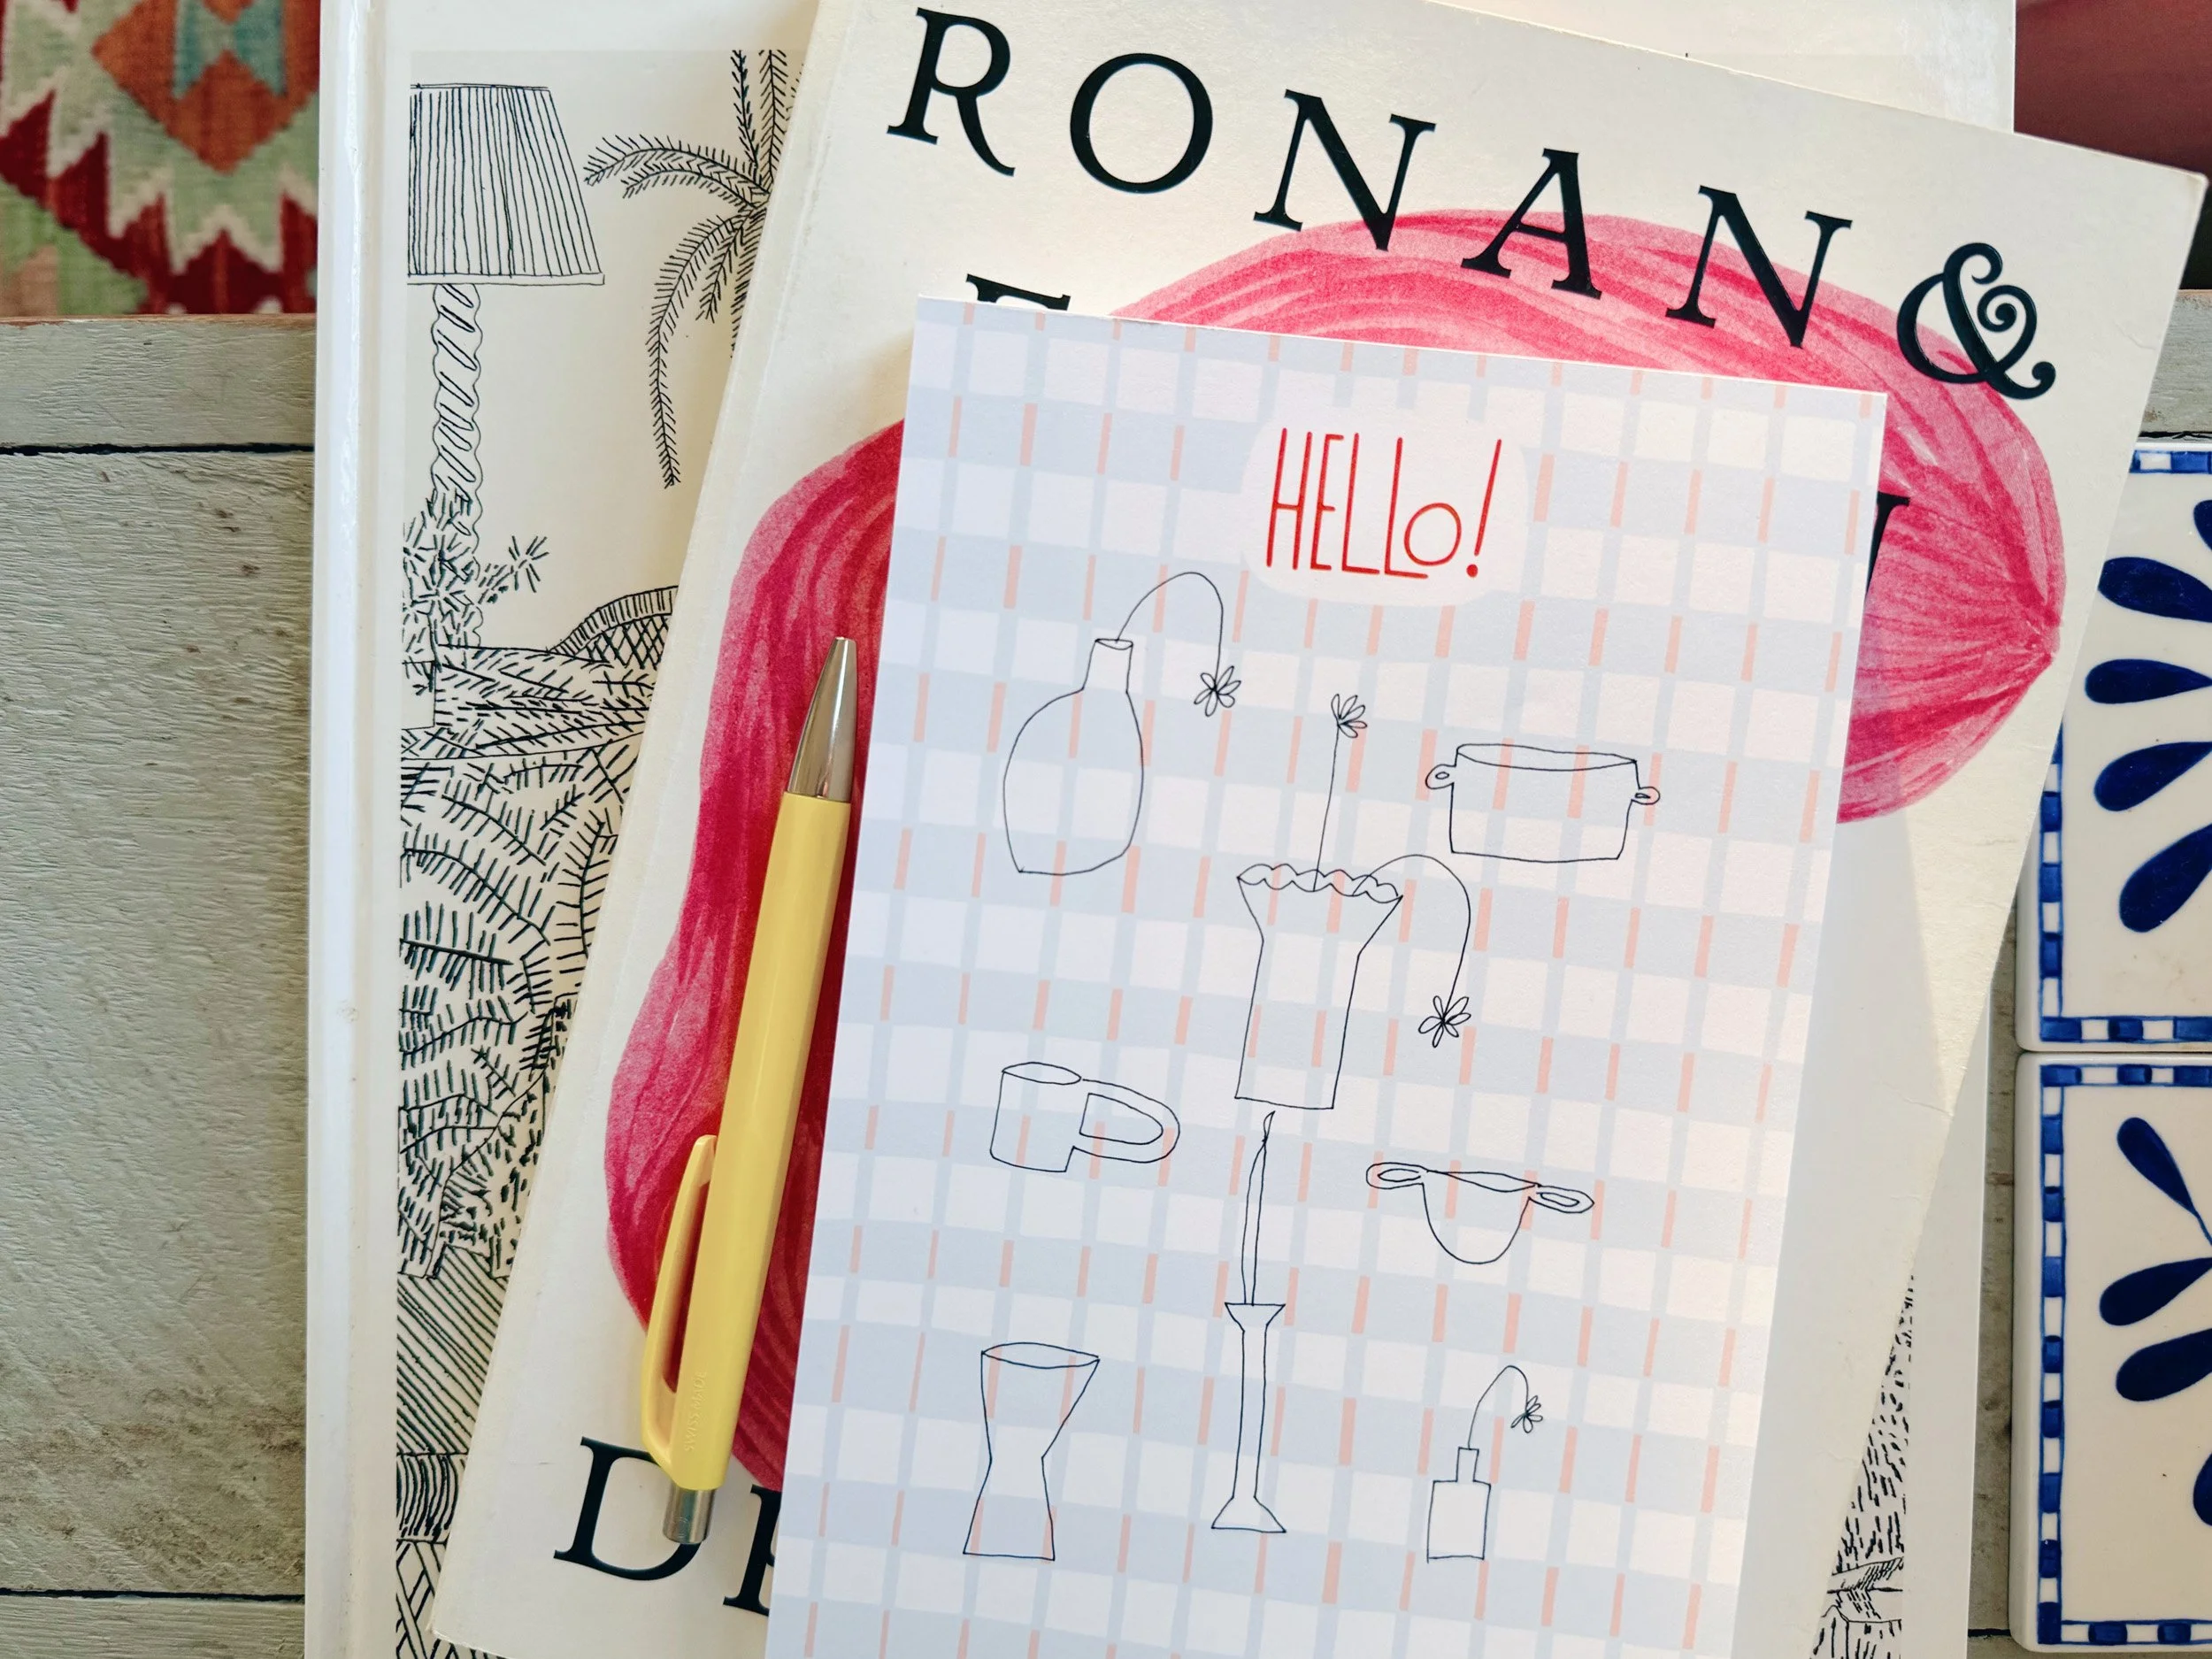 RONAN &
HELLo!
SWISS MADE